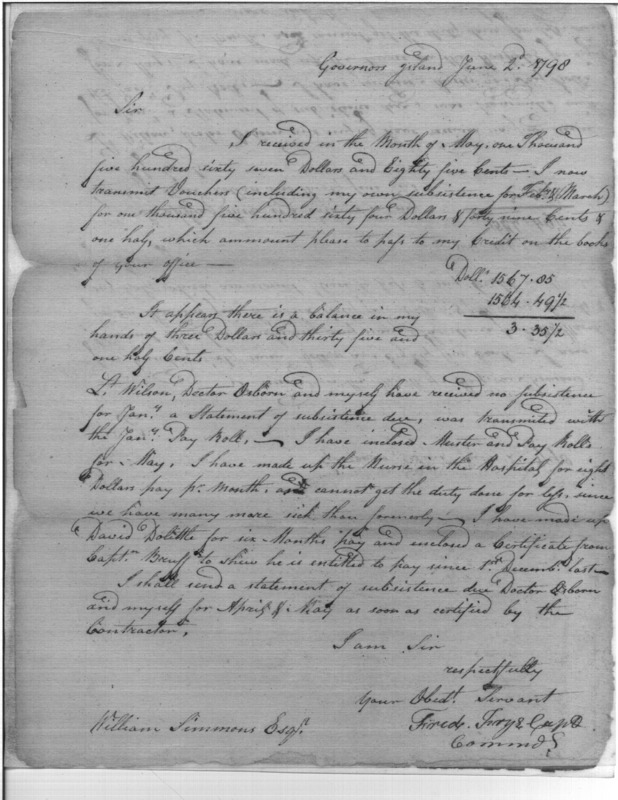 Governors Island June 2d. 1798
Sir
I received in the Month of May, one Thousand
five hundred sixty seven Dollars and Eighty five Cents — I now
transmit Vouchers (including my own subsistence for Feby. & March)
for one thousand five hundred sixty four Dollars & forty nine Cents &
one half, which ammount please to pass to my Credit on the books
of your office —
Dolls. 1567.85
1564.49 1/2
3.35 1/2
It appears there is a balance in my
hands of three Dollars and thirty five and
one half Cents
Lt. Wilson, Doctor Osborn and myself have received no subsistence
for Jany. a Statement of subsistence due, was transmitted with
the Jany. Pay Roll, — I have inclosed Muster and Pay Rolls
for May, I have made up the Nurse in the Hospital for eight
Dollars pay pr. Month, and cannot get the duty done for less, since
we have many more sick than formerly — I have made up
David Dolittle for six Months pay and enclosed a Certificate from
Captn. Bruff to shew he is entitled to pay since 1st. Decembr. last —
I shall send a statement of subsistence due Doctor Osborn
and myself for April & May as soon as certified by the
Contractor,
I am Sir
respectfully
Your Obedt. Servant
Fredk. Frye Capt
Commdg
William Simmons Esqr.